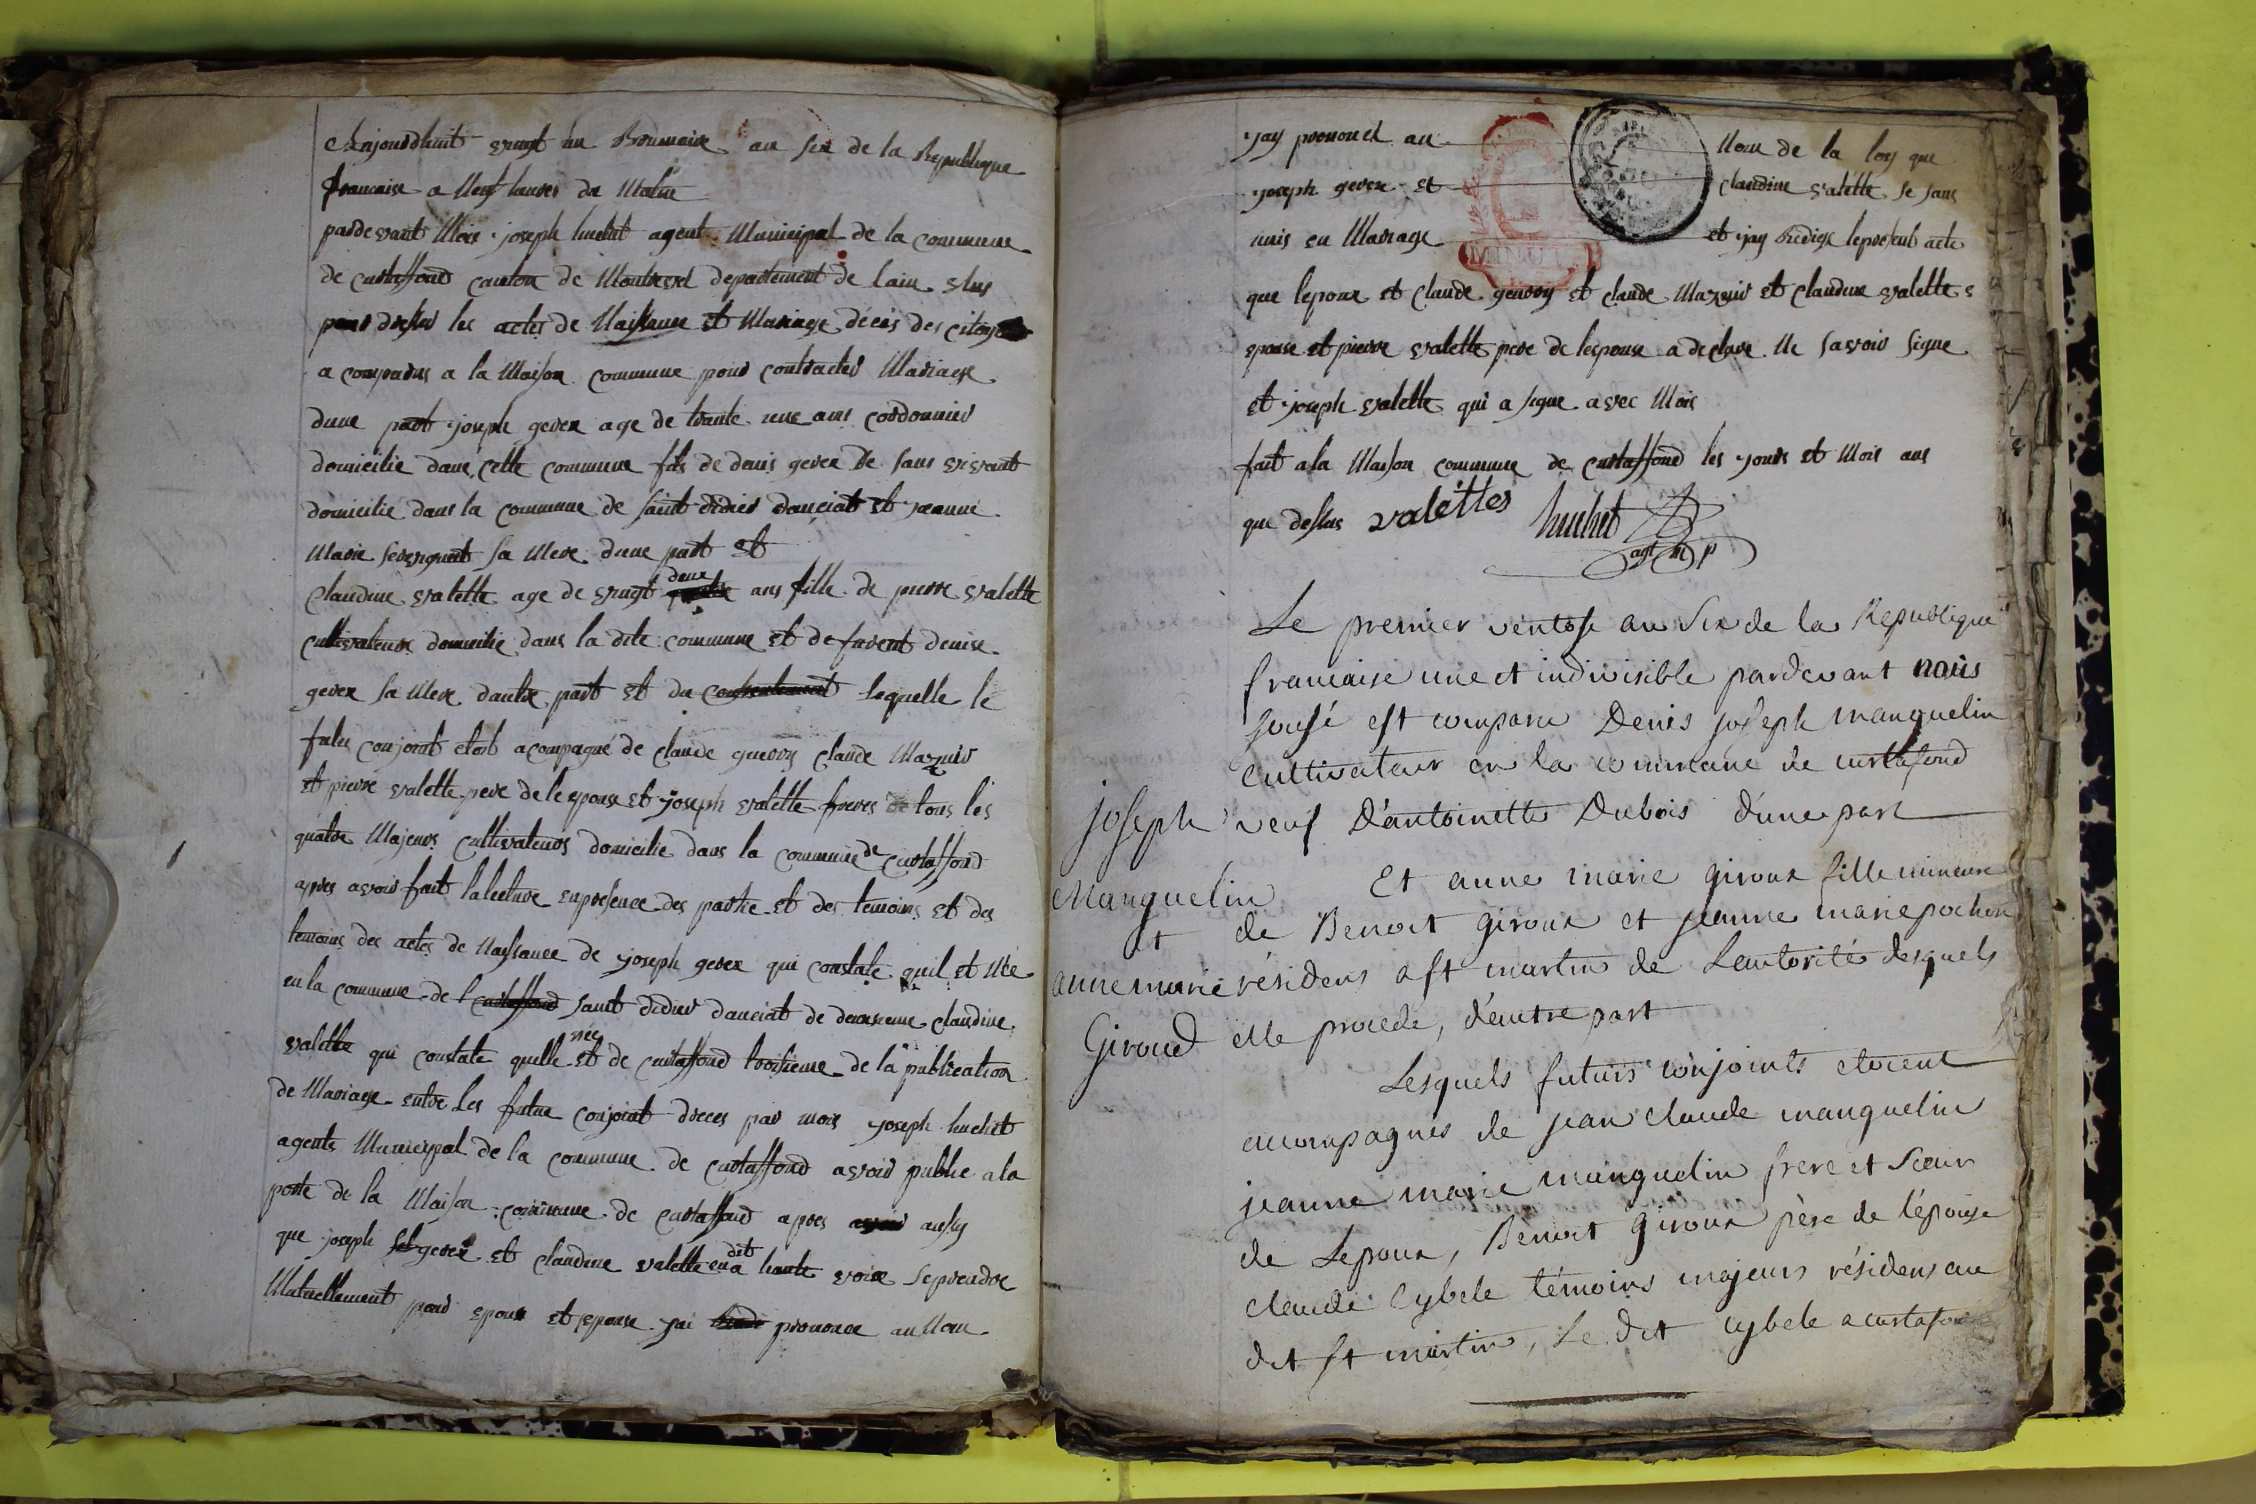 Aujourdhuit vingt un Brumaire an six de la Republique
francaise a Neuf heures du Matin
pardevant Mois joseph huchet agent Municipal de la commune
de curtaffond canton de Montrevel departement de lain elus
pour dresser les actes de Naissance et Mariage déces des citoyens
a comparus a la Maison commune pour contracter Mariage
dune part joseph gevex age de trante une ans cordonnier
domicilie dans cette commune fils de denis gevex de sans vivant
domicilie dans la commune de saint didier danciat et jeanne
Marie servignat sa Mere dune part et
Claudine valette age de vingt deux ans fille de pierre valette
cultivateur domicilie dans la dite commune et de favent denise
gevex sa Mere dautre part et du consentement lequelle le
futur conjoint etoit acompagné de claude guevoy claude Mazuir
et pierre valette pere de lepouse et joseph valette freres de tous les
quatre Majeurs cultivateurs domicilie dans la commune de curtaffond
apres avoir fait lalecture enpresence des partie et des temoins et des
temoins des actes de Naissance de joseph gevex qui constate quil et Née
en la commune de saint didier danciat de deuxieme claudine
valette qui constate quelle et née de curtaffond troisieme de la publication
de Mariage entre les futur conjoint drecés par mois joseph huchet
agents Municipal de la commune de curtaffond avoir publie a la
porte de la Maison commune de curtaffond apres aussy
que joseph gevex et claudine valette en dit a haute voix seprendre
Mutuellement pour epoux et epouse jai prononce au Nom
jay prononcé au Nom de la loy que
joseph gevex et claudine valette se sans
unis en Mariage et jay Redigé lepresent acte
MINUT
que lepoux et claude guevoy et claude Mazuir et claudine valette
epouse et pierre valette pere de lespouse a declare Ne savoir signe
et joseph valette qui a signe avec Mois
fait a la Maison commune de curtaffond les jours et Mois ans
que dessus valéttes huchet
agt m p
Le premier ventose an Six de la Republique
francaise une et indivisible pardevant nous
sousé est comparu Denis joseph manguelin
cultivateur en la commune de curtafond
veuf D'antoinette Dubois d'une part
joseph
Manguelin
et
anne marie
Giroud
Et anne marie giroux fille mineure
de Benoit giroux et jeanne marie pochon
résidens a st martin de Lautorité desquels
elle procede, d'autre part
Lesquels futurs conjoints etocent
accompagnés de jean claude manguelin
jeanne marie manguelin frere et Soeur
de Lepoux, Benoit giroux père de l'épouse
claude Cybele témoins majeurs résidens au
dit st martin, Le dit cybele a curtafond